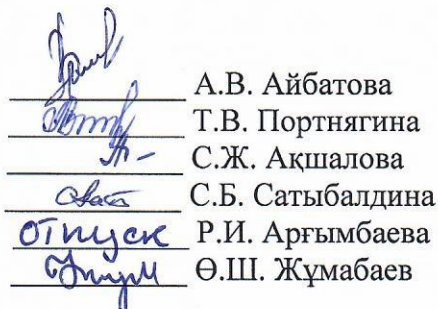 А.В. Айбатова
Т.В. Портнягина
С.Ж. Ақшалова
С.Б. Сатыбалдина
отпуск Р.И. Арғымбаева
Ө.Ш. Жұмабаев